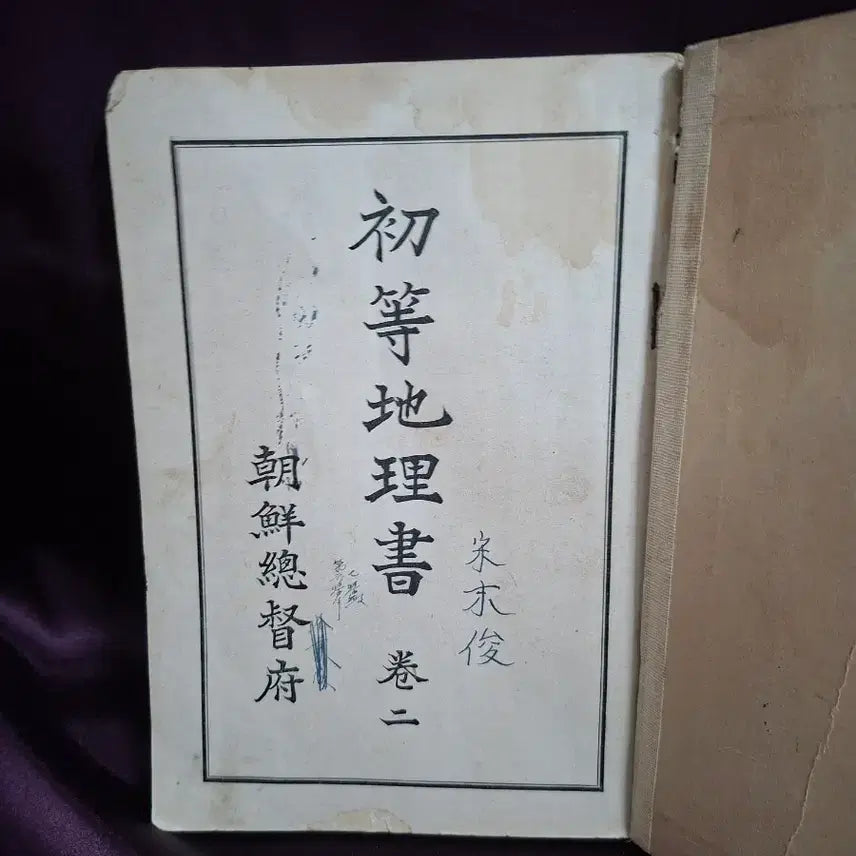 宋末俊
初等地理書 卷二
朝鮮總督府